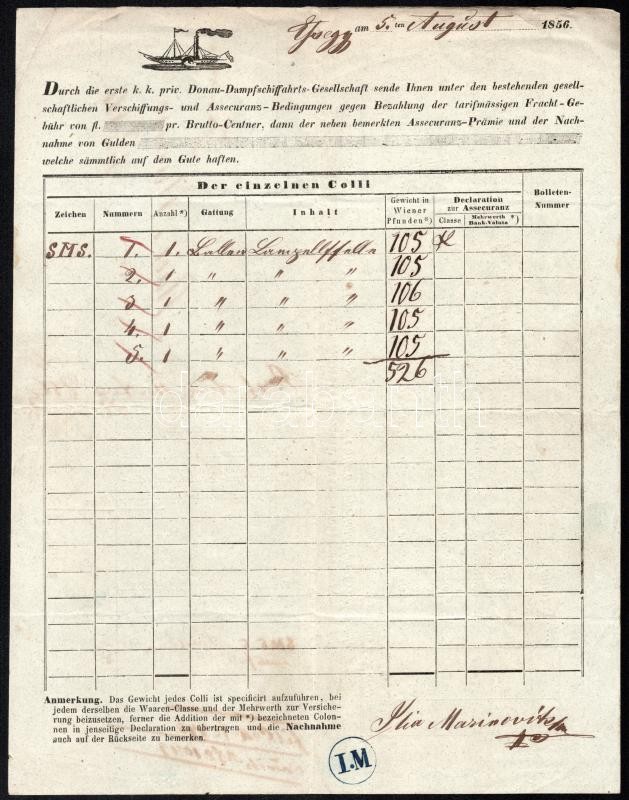 am 5. ten August 1856.
Durch die erste k. k. priv. Donau-Dampfschiffahrts-Gesellschaft sende Ihnen unter den bestehenden gesell-
schaftlichen Verschiffungs- und Assecuranz-Bedingungen gegen Bezahlung der tarifmässigen Fracht-Ge-
bühr von fl. pr. Brutto-Centner, dann der neben bemerkten Assecuranz-Prämie und der Nach-
nahme von Gulden
welche sämmtlich auf dem Gute haften.
Der einzelnen Colli
Zeichen Nummern Anzahl *) Gattung Inhalt Gewicht in Wiener Pfunden *) Declaration zur Assecuranz Classe Mehrwerth *) Bank-Valuta Bolleten-Nummer
SMS. 1. 1. Ballen 105
2. 1 " " " 105
3 1 " " " 106
4. 1 " " " 105
5. 1 " " " 105
526
Anmerkung. Das Gewicht jedes Colli ist specificirt aufzuführen, bei
jedem derselben die Waaren-Classe und der Mehrwerth zur Versiche-
rung beizusetzen, ferner die Addition der mit *) bezeichneten Colon-
nen in jenseitige Declaration zu übertragen und die Nachnahme
auch auf der Rückseite zu bemerken.
Ilia
I.M